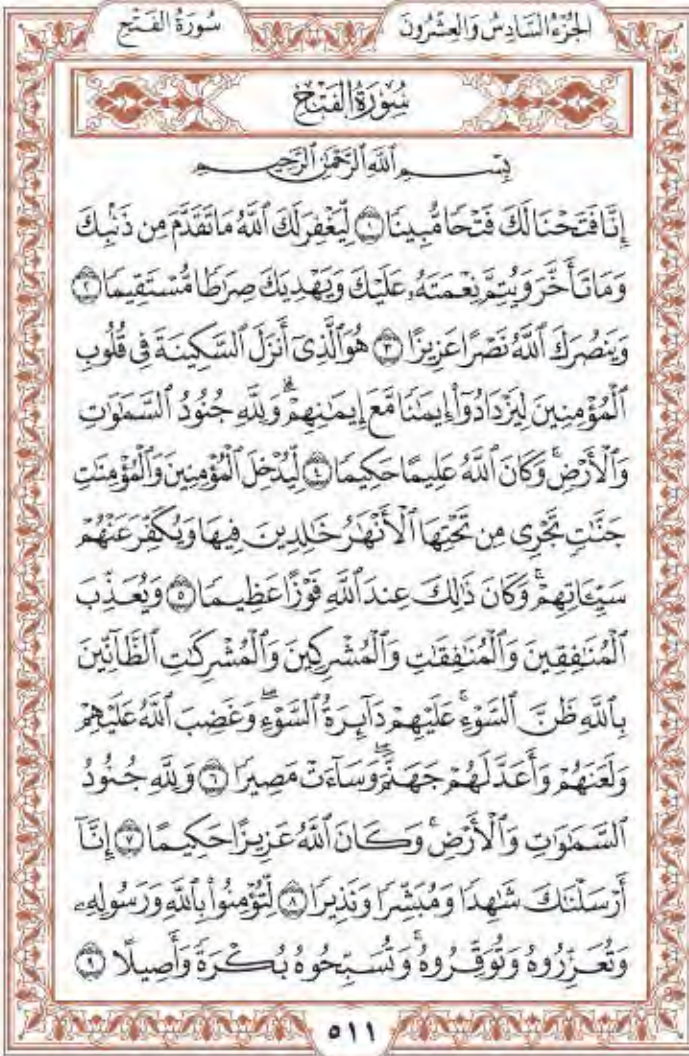 سُورَةُ الفَتْحِ
الجُزْءُ السَّادِسُ وَالعِشْرُونَ
سُورَةُ الفَتْحِ
بِسْمِ ٱللَّهِ ٱلرَّحْمَٰنِ ٱلرَّحِيمِ
إِنَّا فَتَحْنَا لَكَ فَتْحًا مُّبِينًا ١ لِّيَغْفِرَ لَكَ ٱللَّهُ مَا تَقَدَّمَ مِن ذَنۢبِكَ
وَمَا تَأَخَّرَ وَيُتِمَّ نِعْمَتَهُۥ عَلَيْكَ وَيَهْدِيَكَ صِرَٰطًا مُّسْتَقِيمًا ٢
وَيَنصُرَكَ ٱللَّهُ نَصْرًا عَزِيزًا ٣ هُوَ ٱلَّذِىٓ أَنزَلَ ٱلسَّكِينَةَ فِى قُلُوبِ
ٱلْمُؤْمِنِينَ لِيَزْدَادُوٓا۟ إِيمَٰنًا مَّعَ إِيمَٰنِهِمْ ۗ وَلِلَّهِ جُنُودُ ٱلسَّمَٰوَٰتِ
وَٱلْأَرْضِ ۚ وَكَانَ ٱللَّهُ عَلِيمًا حَكِيمًا ٤ لِّيُدْخِلَ ٱلْمُؤْمِنِينَ وَٱلْمُؤْمِنَٰتِ
جَنَّٰتٍ تَجْرِى مِن تَحْتِهَا ٱلْأَنْهَٰرُ خَٰلِدِينَ فِيهَا وَيُكَفِّرَ عَنْهُمْ
سَيِّـَٔاتِهِمْ ۚ وَكَانَ ذَٰلِكَ عِندَ ٱللَّهِ فَوْزًا عَظِيمًا ٥ وَيُعَذِّبَ
ٱلْمُنَٰفِقِينَ وَٱلْمُنَٰفِقَٰتِ وَٱلْمُشْرِكِينَ وَٱلْمُشْرِكَٰتِ ٱلظَّآنِّينَ
بِٱللَّهِ ظَنَّ ٱلسَّوْءِ ۚ عَلَيْهِمْ دَآئِرَةُ ٱلسَّوْءِ ۖ وَغَضِبَ ٱللَّهُ عَلَيْهِمْ
وَلَعَنَهُمْ وَأَعَدَّ لَهُمْ جَهَنَّمَ ۖ وَسَآءَتْ مَصِيرًا ٦ وَلِلَّهِ جُنُودُ
ٱلسَّمَٰوَٰتِ وَٱلْأَرْضِ ۚ وَكَانَ ٱللَّهُ عَزِيزًا حَكِيمًا ٧ إِنَّآ
أَرْسَلْنَٰكَ شَٰهِدًا وَمُبَشِّرًا وَنَذِيرًا ٨ لِّتُؤْمِنُوا۟ بِٱللَّهِ وَرَسُولِهِۦ
وَتُعَزِّرُوهُ وَتُوَقِّرُوهُ ۚ وَتُسَبِّحُوهُ بُكْرَةً وَأَصِيلًا ٩
٥١١